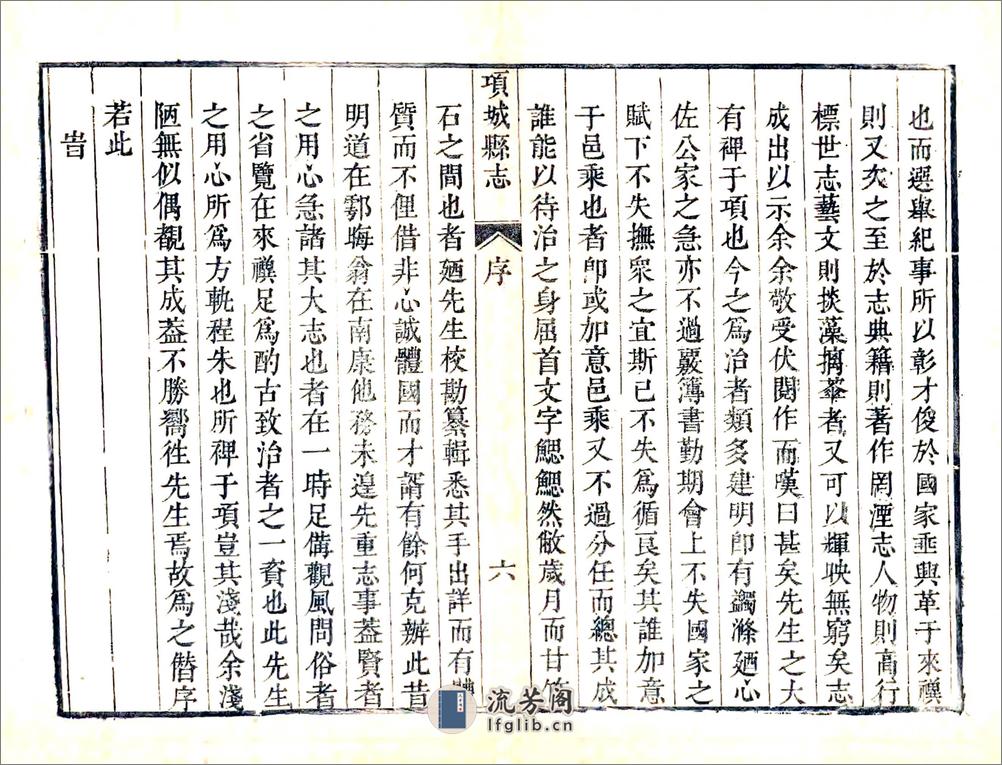 也而選舉紀事所以彰才俊於國家垂興革于來禩
則又次之至於志典籍則著作罔湮志人物則高行
標世志藝文則掞藻摛華者又可以輝映無窮矣志
成出以示余余敬受伏閱作而嘆曰甚矣先生之大
有裨于項也今之為治者類多建明卽有蠲滌廼心
佐公家之急亦不過覈簿書勤期會上不失國家之
賦下不失撫衆之宜斯已不失為循良矣其誰加意
于邑乘也者卽或加意邑乘又不過分任而總其成
誰能以待治之身屈首文字鰓鰓然敝歲月而甘
項城縣志
序
六
石之間也者廼先生校勘纂輯悉其手出詳而有體
質而不俚借非心誠體國而才諝有餘何克辦此昔
明道在鄠晦翁在南康他務未遑先重志事葢賢者
之用心急諸其大志也者在一時足備觀風問俗者
之省覽在來禩足爲酌古致治者之一資也此先生
之用心所爲方軌程朱也所裨于項豈其淺哉余淺
陋無似偶觀其成葢不勝嚮徃先生焉故爲之僭序
若此
旹
流芳阁
lfglib.cn